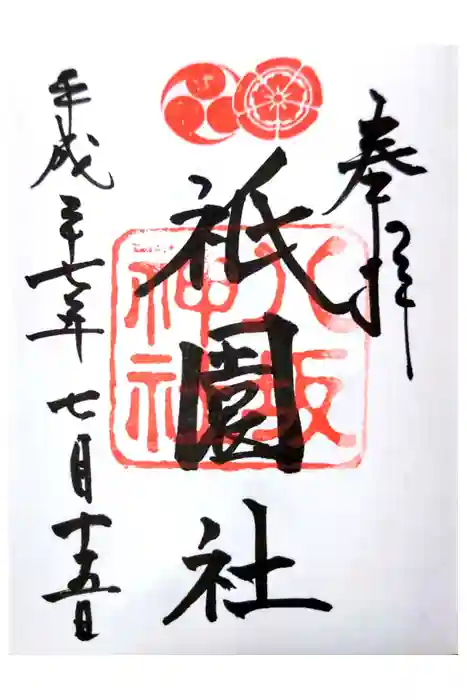 奉拝
祇園社
八坂神社
平成二十七年七月十五日